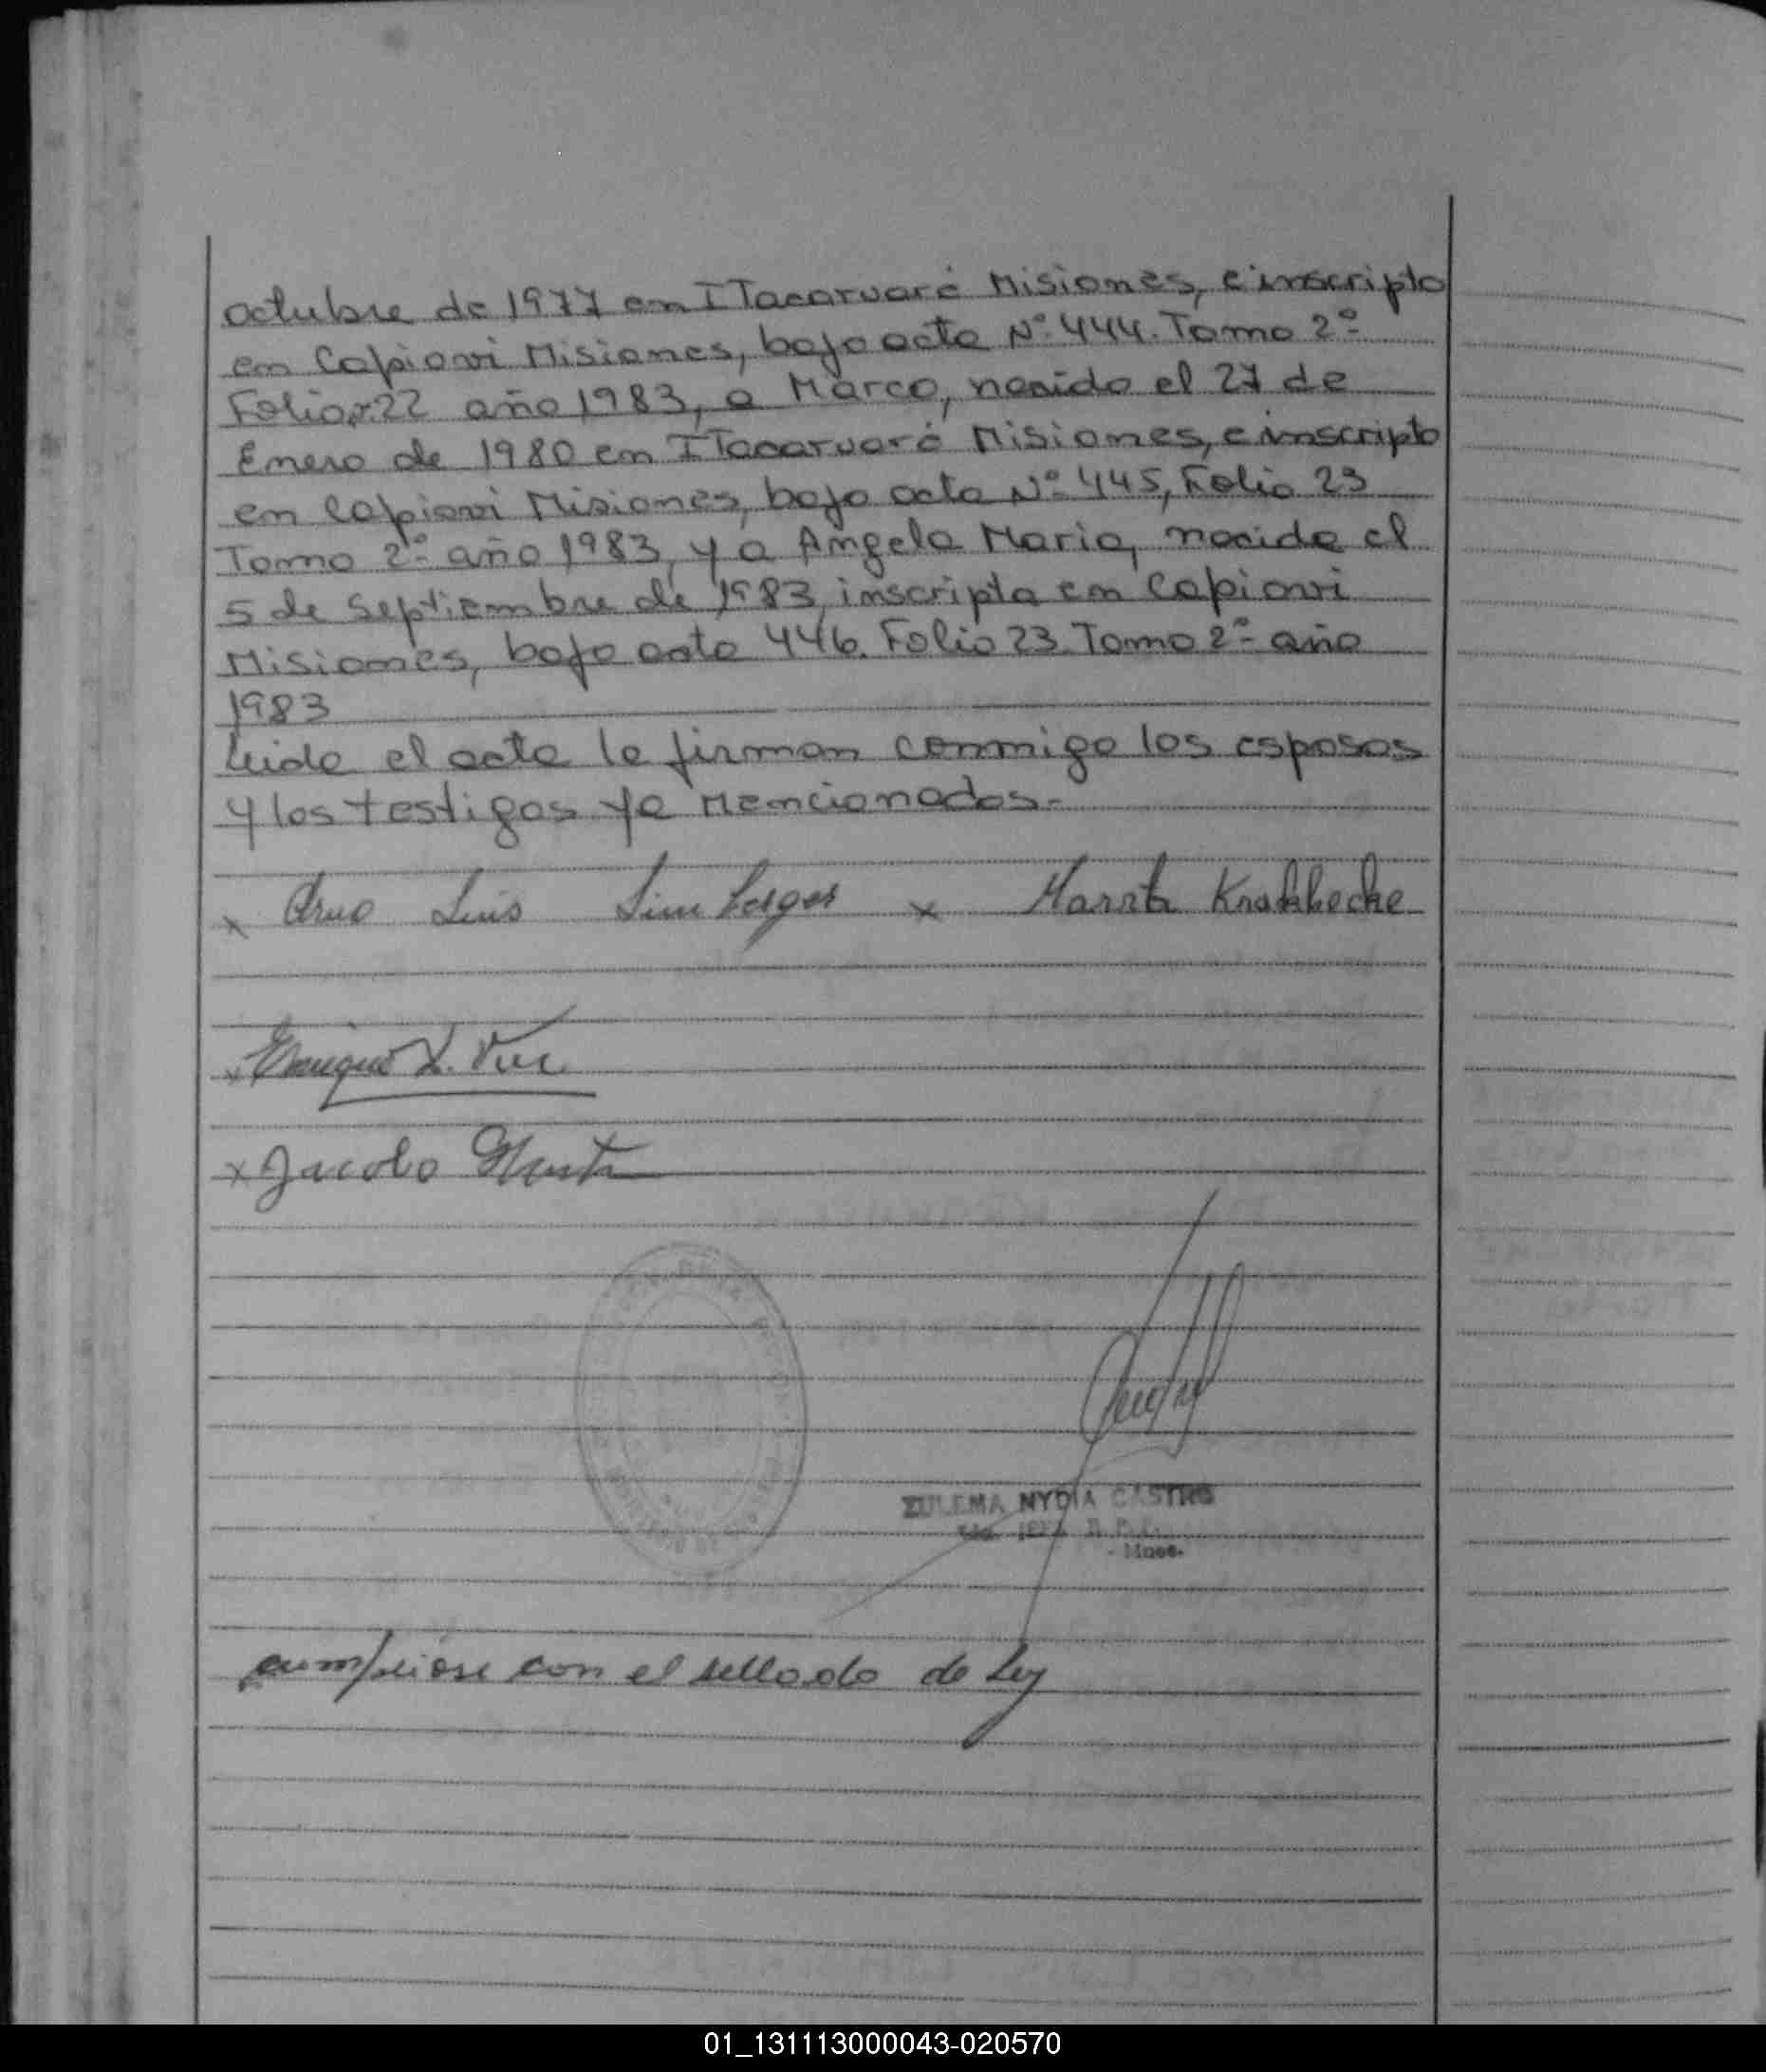 octubre de 1977 en ITacaruaré Misiones, e inscripto
en Capiovi Misiones, bajo acta Nº 444. Tomo 2º
Folio 22 año 1983, a Marco, nacido el 27 de
Enero de 1980 en ITacaruaré Misiones, e inscripto
en Capiovi Misiones, bajo acta Nº 445, Folio 23
Tomo 2º año 1983, y a Angela Maria, nacida el
5 de Septiembre de 1983, inscripta en Capiovi
Misiones, bajo acta 446. Folio 23. Tomo 2º año
1983
Leida el acta la firman conmigo los esposos
y los testigos ya Mencionados.-
x Luis x
x Enrique
x Jacobo
ZULEMA NYDIA CASTRO
- Mnes.
cumpliose con el sellado de Ley
01_131113000043-020570